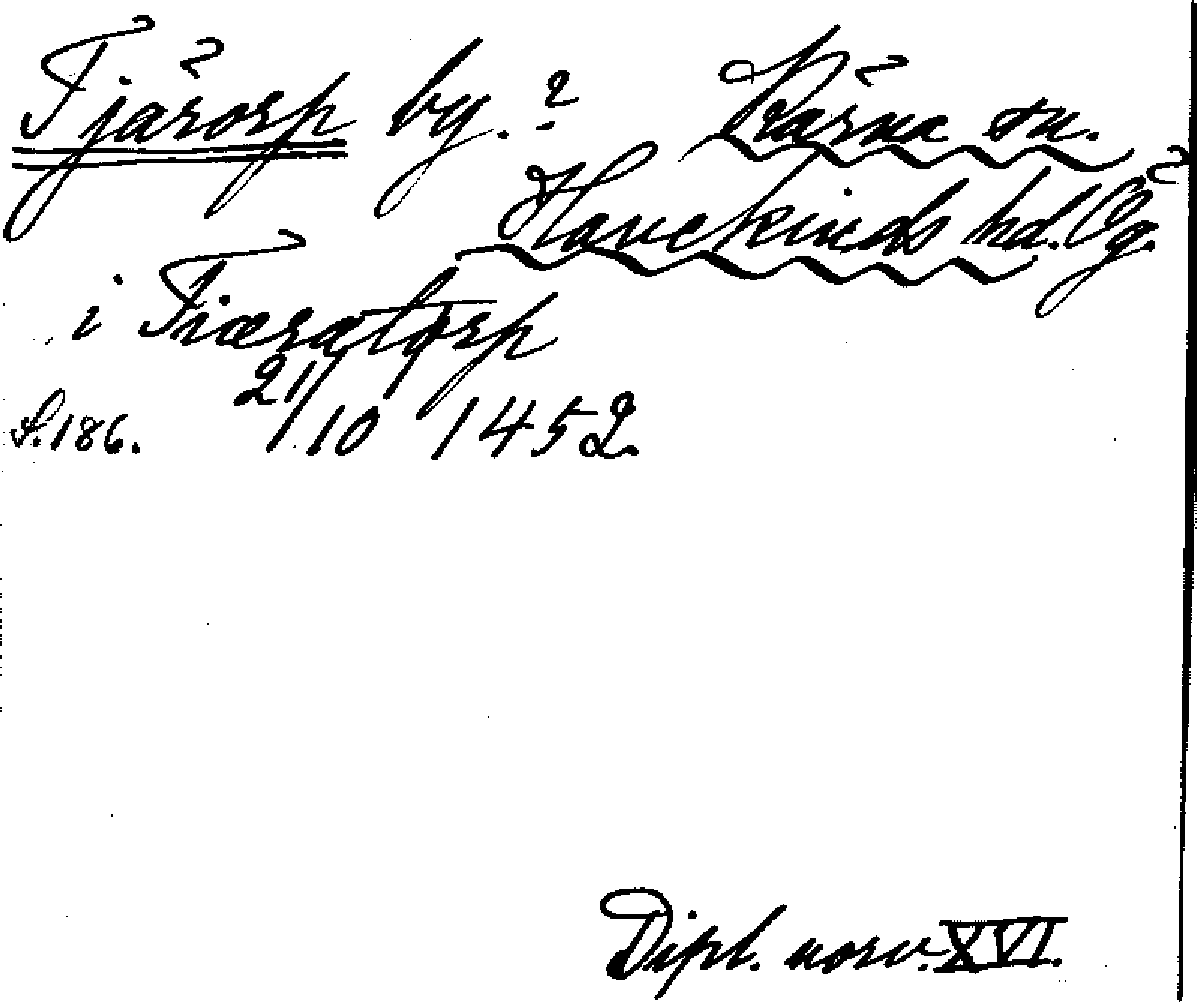 Tjärorp by.? Kärna sn.
Hanekinds hd. Ög.
i Tiæratorp
S. 186. 21/10 1452.
Dipl. norv. XVI.